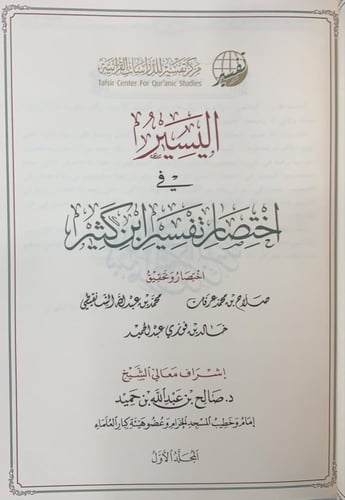 تفسير
مركز تفسير للدراسات القرآنية
Tafsir Center For Qur'anic Studies
اليسير
في
اختصار تفسير ابن كثير
اختصار وتحقيق
صلاح بن محمد عرفات محمد بن عبد الله الشنقيطي
خالد بن فوزي عبد الحميد
إشراف معالي الشيخ
د. صالح بن عبد الله بن حميد
إمام وخطيب المسجد الحرام وعضو هيئة كبار العلماء
المجلد الأول